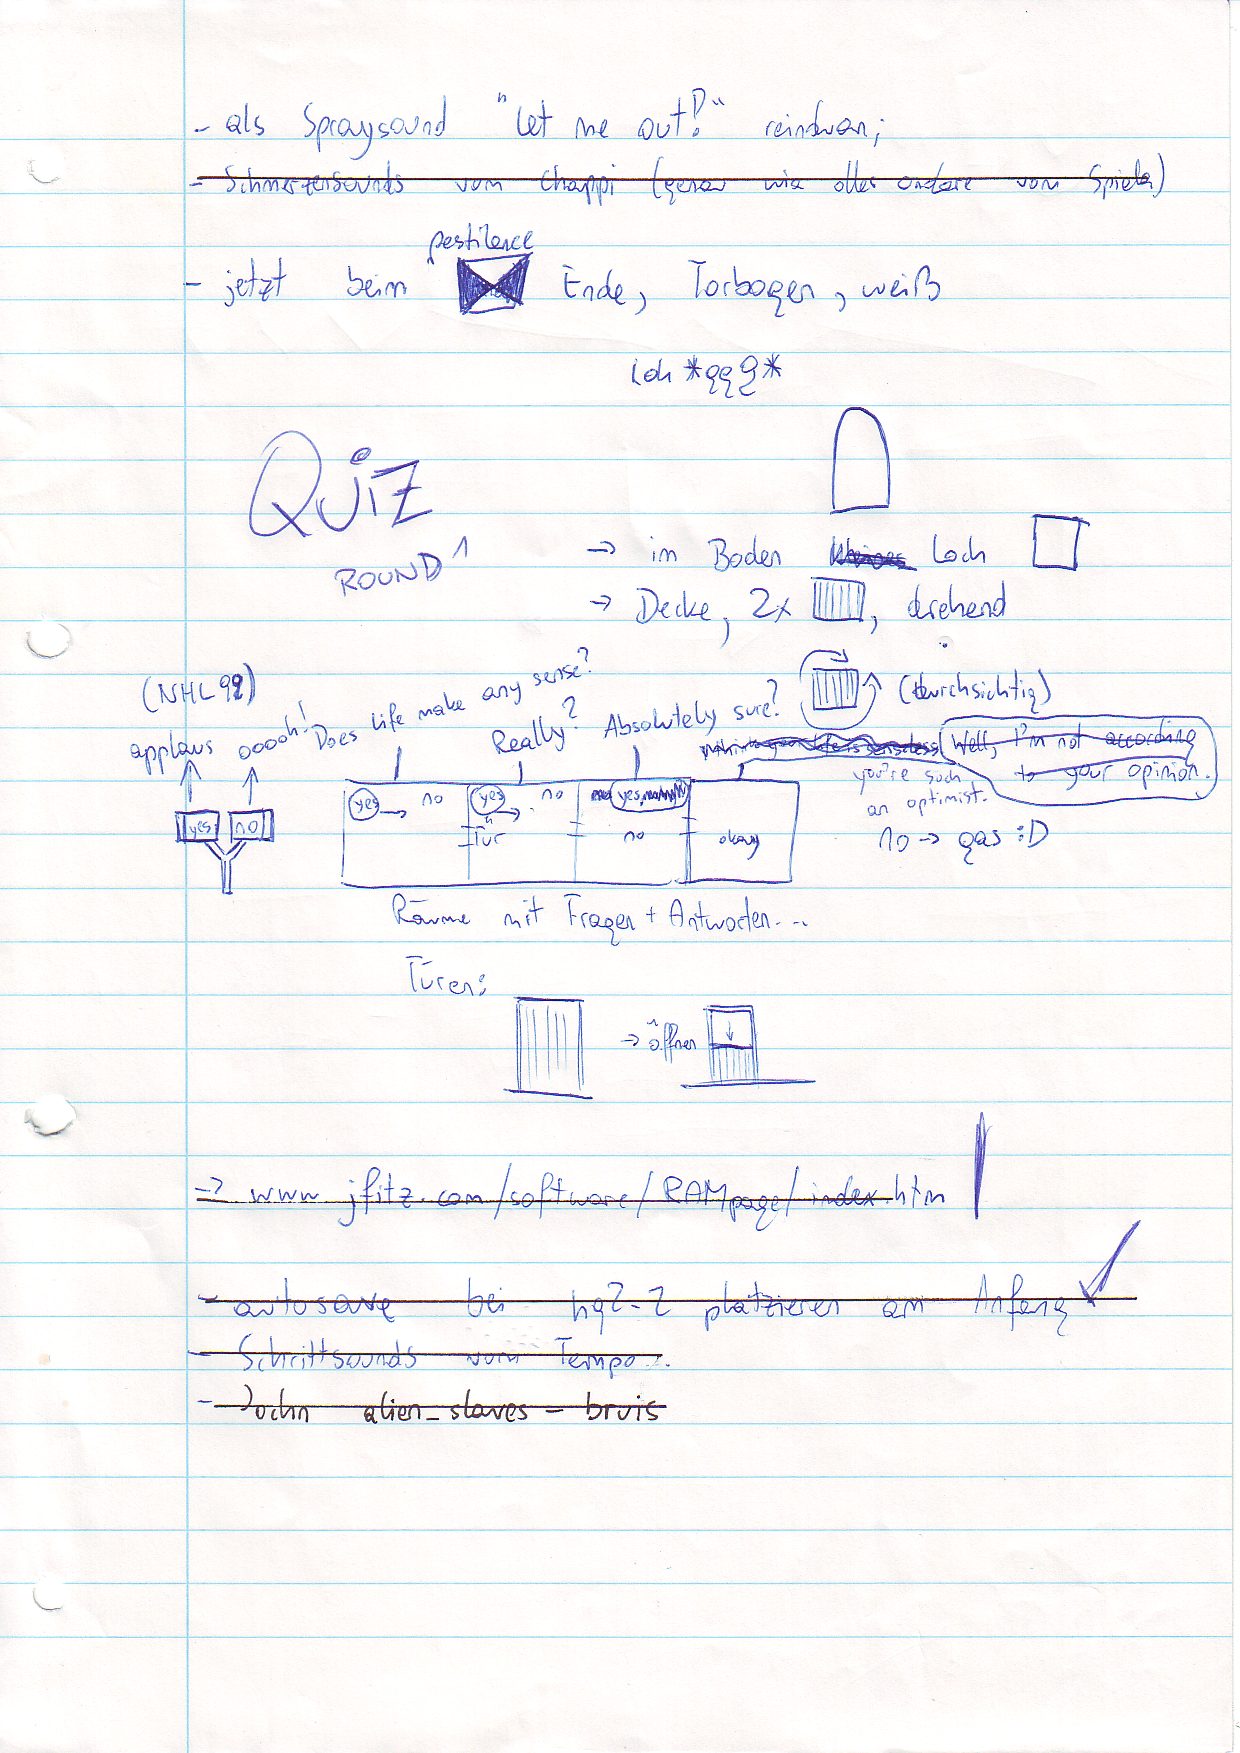 - als Spraysound "Let me out!" reindran;
- Schmerzensounds vom Chappi (genau wie alles andere vom Spieler)
pestilence
- jetzt beim Ende, Torbogen, weiß
Loch *ggg*
QuiZ
ROUND 1
-> im Boden Loch
-> Decke, 2x , drehend
(durchsichtig)
(NHL 99)
applaus
ooooh!
Does life make any sense?
Really?
Absolutely sure?
Well, I'm not according
to your opinion.
you're such
an optimist.
yes no
yes no yes no yes,
Tür no okay
no -> gas :D
Räume mit Fragen + Antworten...
Türen:
-> öffnen
-> www.jfitz.com/software/RAMpage/index.htm
- autosave bei hq2-2 platzieren am Anfang
- Schrittsounds vom Tempo..
- John alien_slaves - bruis